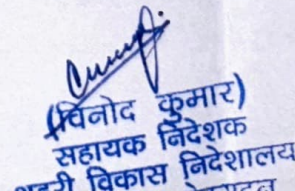 (विनोद कुमार)
सहायक निदेशक
शहरी विकास निदेशालय